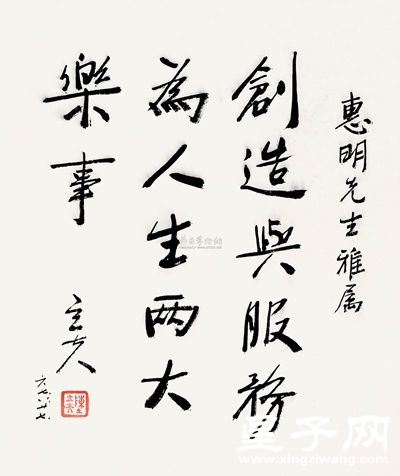 惠明先生雅属
創造與服務
為人生两大
樂事
立夫
陳立夫
星子网
www.xingziwang.com